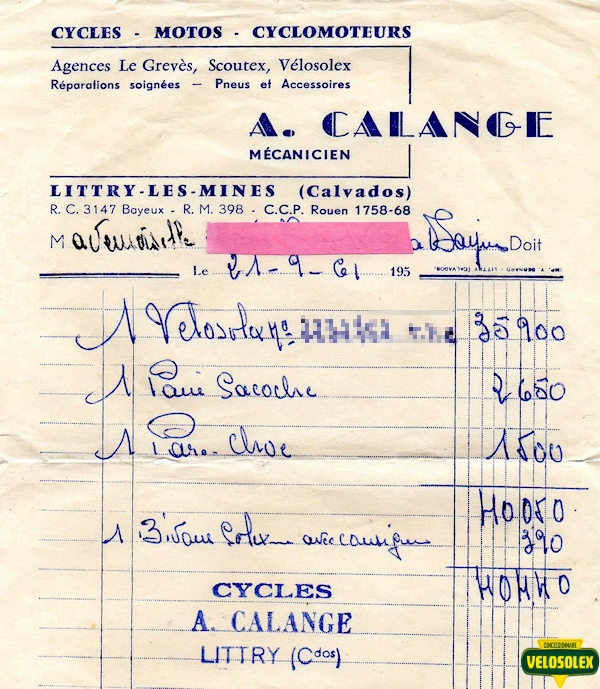 CYCLES - MOTOS - CYCLOMOTEURS
Agences Le Grevès, Scoutex, Vélosolex
Réparations soignées — Pneus et Accessoires
A. CALANGE
MÉCANICIEN
LITTRY-LES-MINES (Calvados)
R. C. 3147 Bayeux - R. M. 398 - C.C.P. Rouen 1758-68
Mademoiselle Doit
Le 21-9-61 195
IMP. Y. BERNARD - LITTRY (CALVADOS)
1 Velosolex no 35900
1 Paire Sacoche 2650
1 Pare-Choc 1500
40050
1 Bidon Solex avec consigne 390
40440
CYCLES
A. CALANGE
LITTRY (Cdos)
CONCESSIONNAIRE
VELOSOLEX